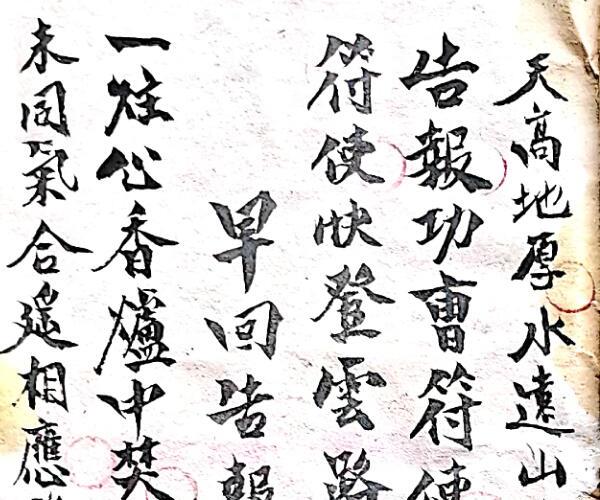 天高地厚水遠山
告報功曹符使
符使伏登雲路
早回告報
一炷心香爐中焚
未同氣合遙相應